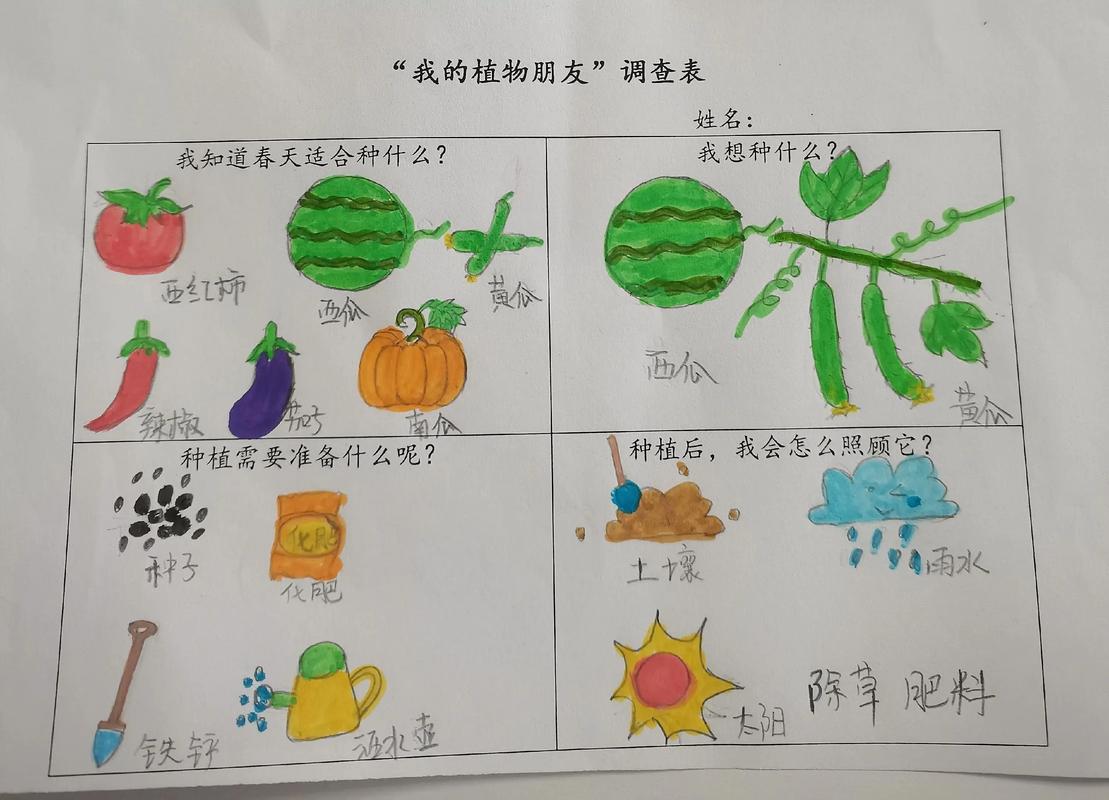 “我的植物朋友”调查表
姓名：
我知道春天适合种什么？
西红柿
西瓜
黄瓜
辣椒
茄子
南瓜
我想种什么？
西瓜
黄瓜
种植需要准备什么呢？
种子
化肥
化肥
铁锹
洒水壶
种植后，我会怎么照顾它？
土壤
雨水
太阳
除草 肥料